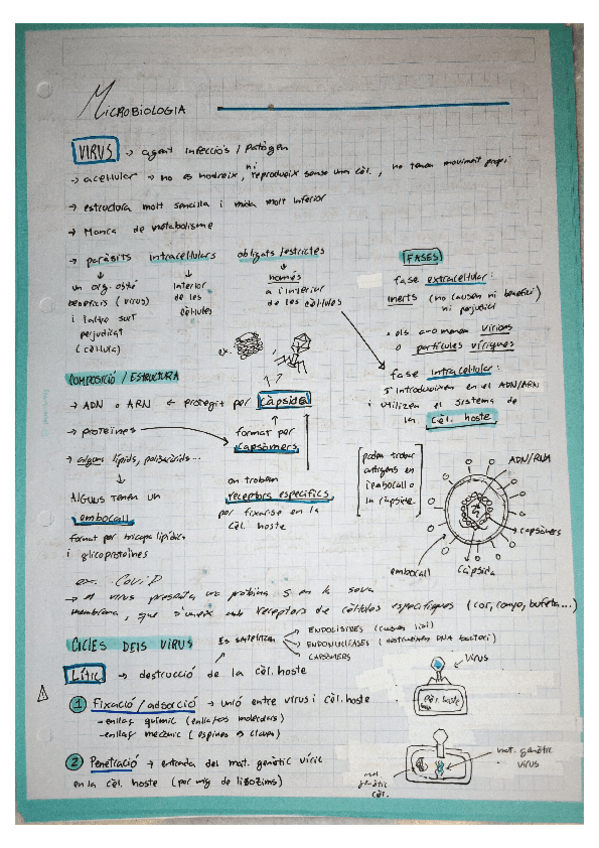 MICROBIOLOGIA
VIRUS → agent infecciós / patògen
→ acel·lular → no es nodreix, ni reprodueix sense una cèl., no tenen moviment propi
→ estructura molt sencilla i mida molt inferior
→ Manca de metabolisme
→ paràsits intracel·lulars obligats/estrictes
un org. obté beneficis (virus) i l'altre surt perjudicat (cèl·lula)
interior de les cèl·lules
només a l'interior de les cèl·lules
FASES
fase extracel·lular:
inerts (no causen ni benefici ni perjudici
• els anomenem virions
o partícules víriques
fase intracel·lular:
s'introdueixen en el ADN/ARN
i utilitzen el sistema de
la cèl. hoste
ex.
COMPOSICIÓ / ESTRUCTURA
→ ADN o ARN ← protegit per Càpsida
→ proteïnes
format per
Capsòmers
→ alguns lípids, polisacàrids...
ALGUNS TENEN UN
embocall
format per bicapa lipídica
i glicoproteïnes
on trobem
receptors específics
per fixarse en la
cèl. hoste
poden trobar
antigens en
l'embocall o
la càpside.
ADN/RNA
capsòmers
Càpsida
embocall
ex. CoviD
→ el virus presenta una proteïna S en la seva
membrana, que s'uneix amb receptors de cèl·lules específiques (cor, ronyó, bufeta...)
CICLES DELS VIRUS
ENDOLISINES
ENDONUCLEASES (destrueixen DNA bacterià)
CAPSÒMERS
Lític → destrucció de la cèl. hoste
virus
cèl. hoste
1 Fixació/adsorció → unió entre virus i cèl. hoste
- enllaç químic (enllaços moleculars)
- enllaç mecànic (espines o claus)
2 Penetració → entrada del mat. genètic víric
en la cèl. hoste (per mitjà de lisozims)
mat. genètic
virus
mat.
genètic
cèl.